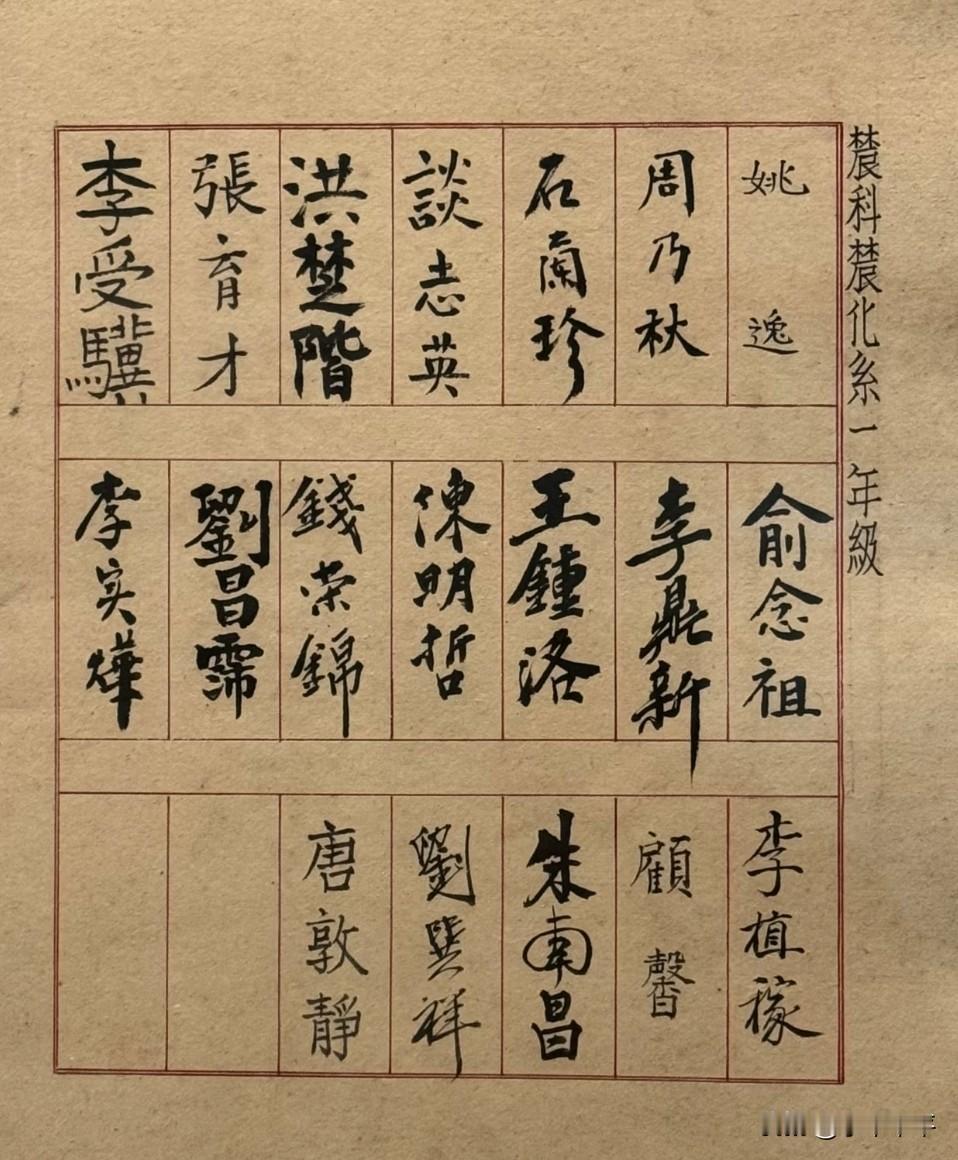 農科農化系一年級
姚逸
周乃秋
石蘭珍
談志英
洪楚階
張育才
李受驥
俞念祖
李鼎新
王鍾洛
陳明哲
錢荣錦
劉昌霈
李实燁
李植稼
顧馨
朱南昌
劉巽祥
唐敦靜